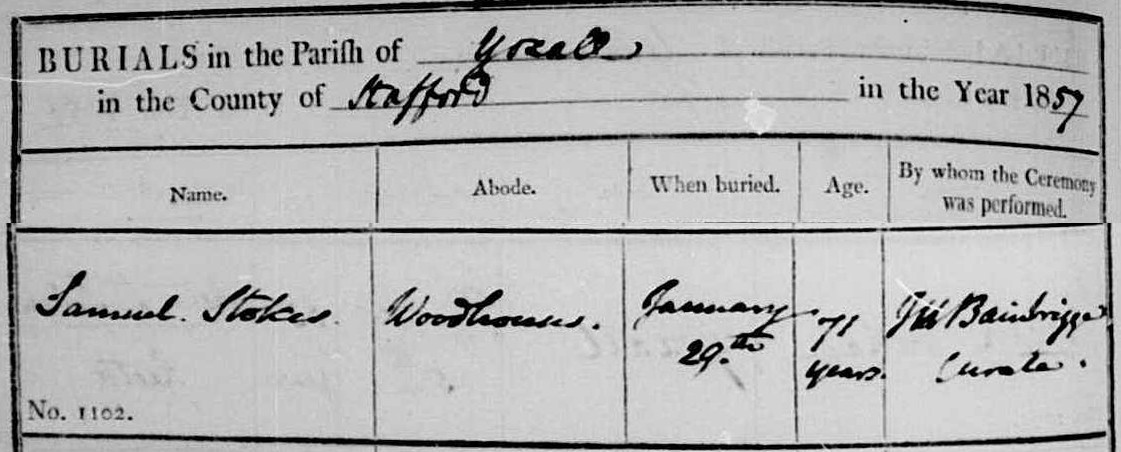 BURIALS in the Parish of Yoxall
in the County of Stafford in the Year 1857
Name. Abode. When buried. Age. By whom the Ceremony was performed.
Samuel Stokes. Woodhouses. January 29.th 71 years. Bainbrigge Curate.
No. 1102.